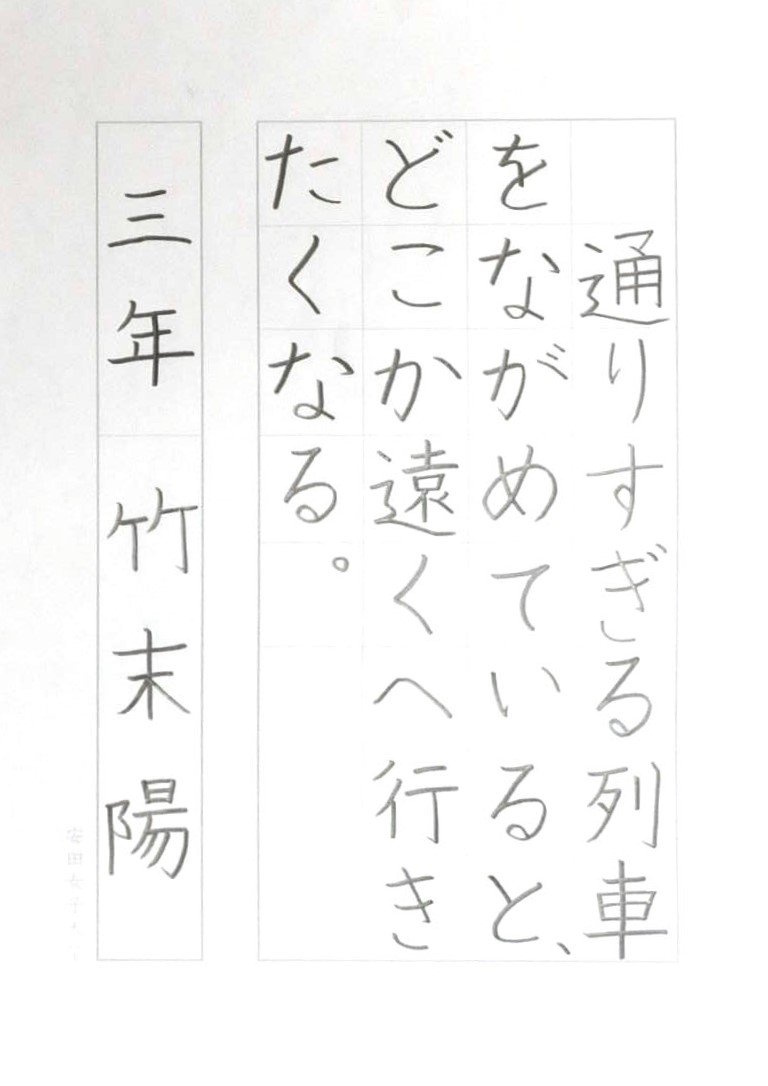 通りすぎる列車
をながめていると、
どこか遠くへ行き
たくなる。
三年 竹末陽
安田女子大